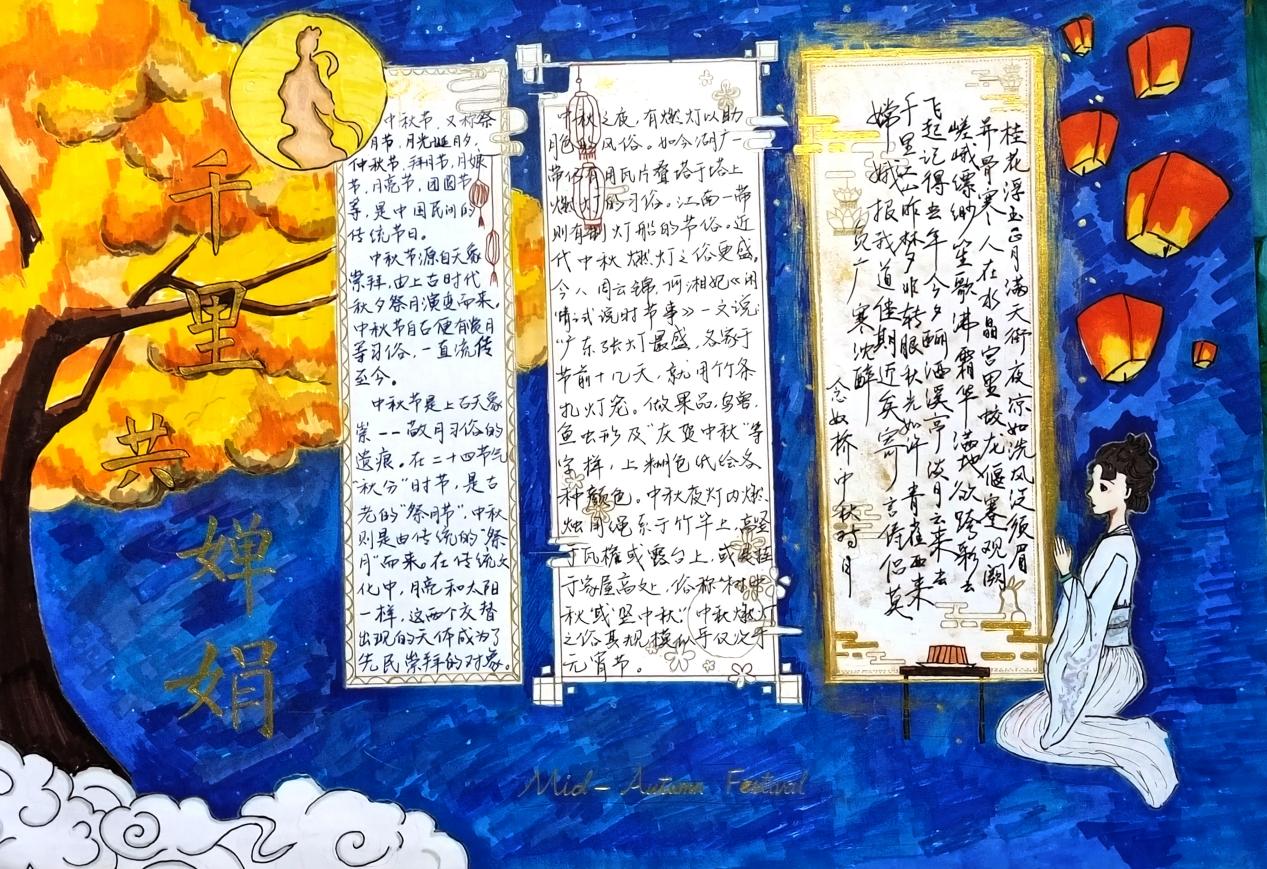 千里共婵娟
中秋节,又称祭
月节、月光诞、月夕、
仲秋节、拜月节、月娘
节、月亮节、团圆节
等,是中国民间的
传统节日。
中秋节源自天象
崇拜,由上古时代
秋夕祭月演变而来。
中秋节自古便有赏月
等习俗,一直流传
至今。
中秋节是上古天象
崇——敬月习俗的
遗痕。在二十四节气
“秋分”时节,是古
老的“祭月节”,中秋
则是由传统的“祭
月”而来。在传统文
化中,月亮和太阳
一样,这两个交替
出现的天体成为了
先民崇拜的对象。
中秋之夜,有燃灯以助
月色的风俗。如今湖广一
带仍有用瓦片叠塔于塔上
燃灯的习俗。江南一带
则有制灯船的节俗。近
代中秋燃灯之俗更盛。
今人周云锦、何湘妃《闲
情试说时节事》一文说:
“广东张灯最盛,各家于
节前十几天,就用竹条
扎灯笼。做果品、鸟兽、
鱼虫形及“庆贺中秋”等
字样,上糊色纸绘各
种颜色。中秋夜灯内燃
烛用绳系于竹竿上,高竖
于瓦檐或露台上,或悬挂
于家屋高处,俗称“树中
秋”或“竖中秋”。中秋燃灯
之俗其规模似乎仅次于
元宵节。
桂花浮玉正月满天街夜凉如洗风泛须眉
并骨寒人在水晶宫里蛟龙偃蹇观阙
嵯峨缥缈笙歌沸霜华满地欲跨彩云
飞起记得去年今夕酾酒溪亭淡月云来去
千里江山昨梦非转眼秋光如许青雀西来
嫦娥报我道佳期近矣寄言俦侣莫
负广寒沈醉
念奴桥中秋对月
Mid-Autumn Festival